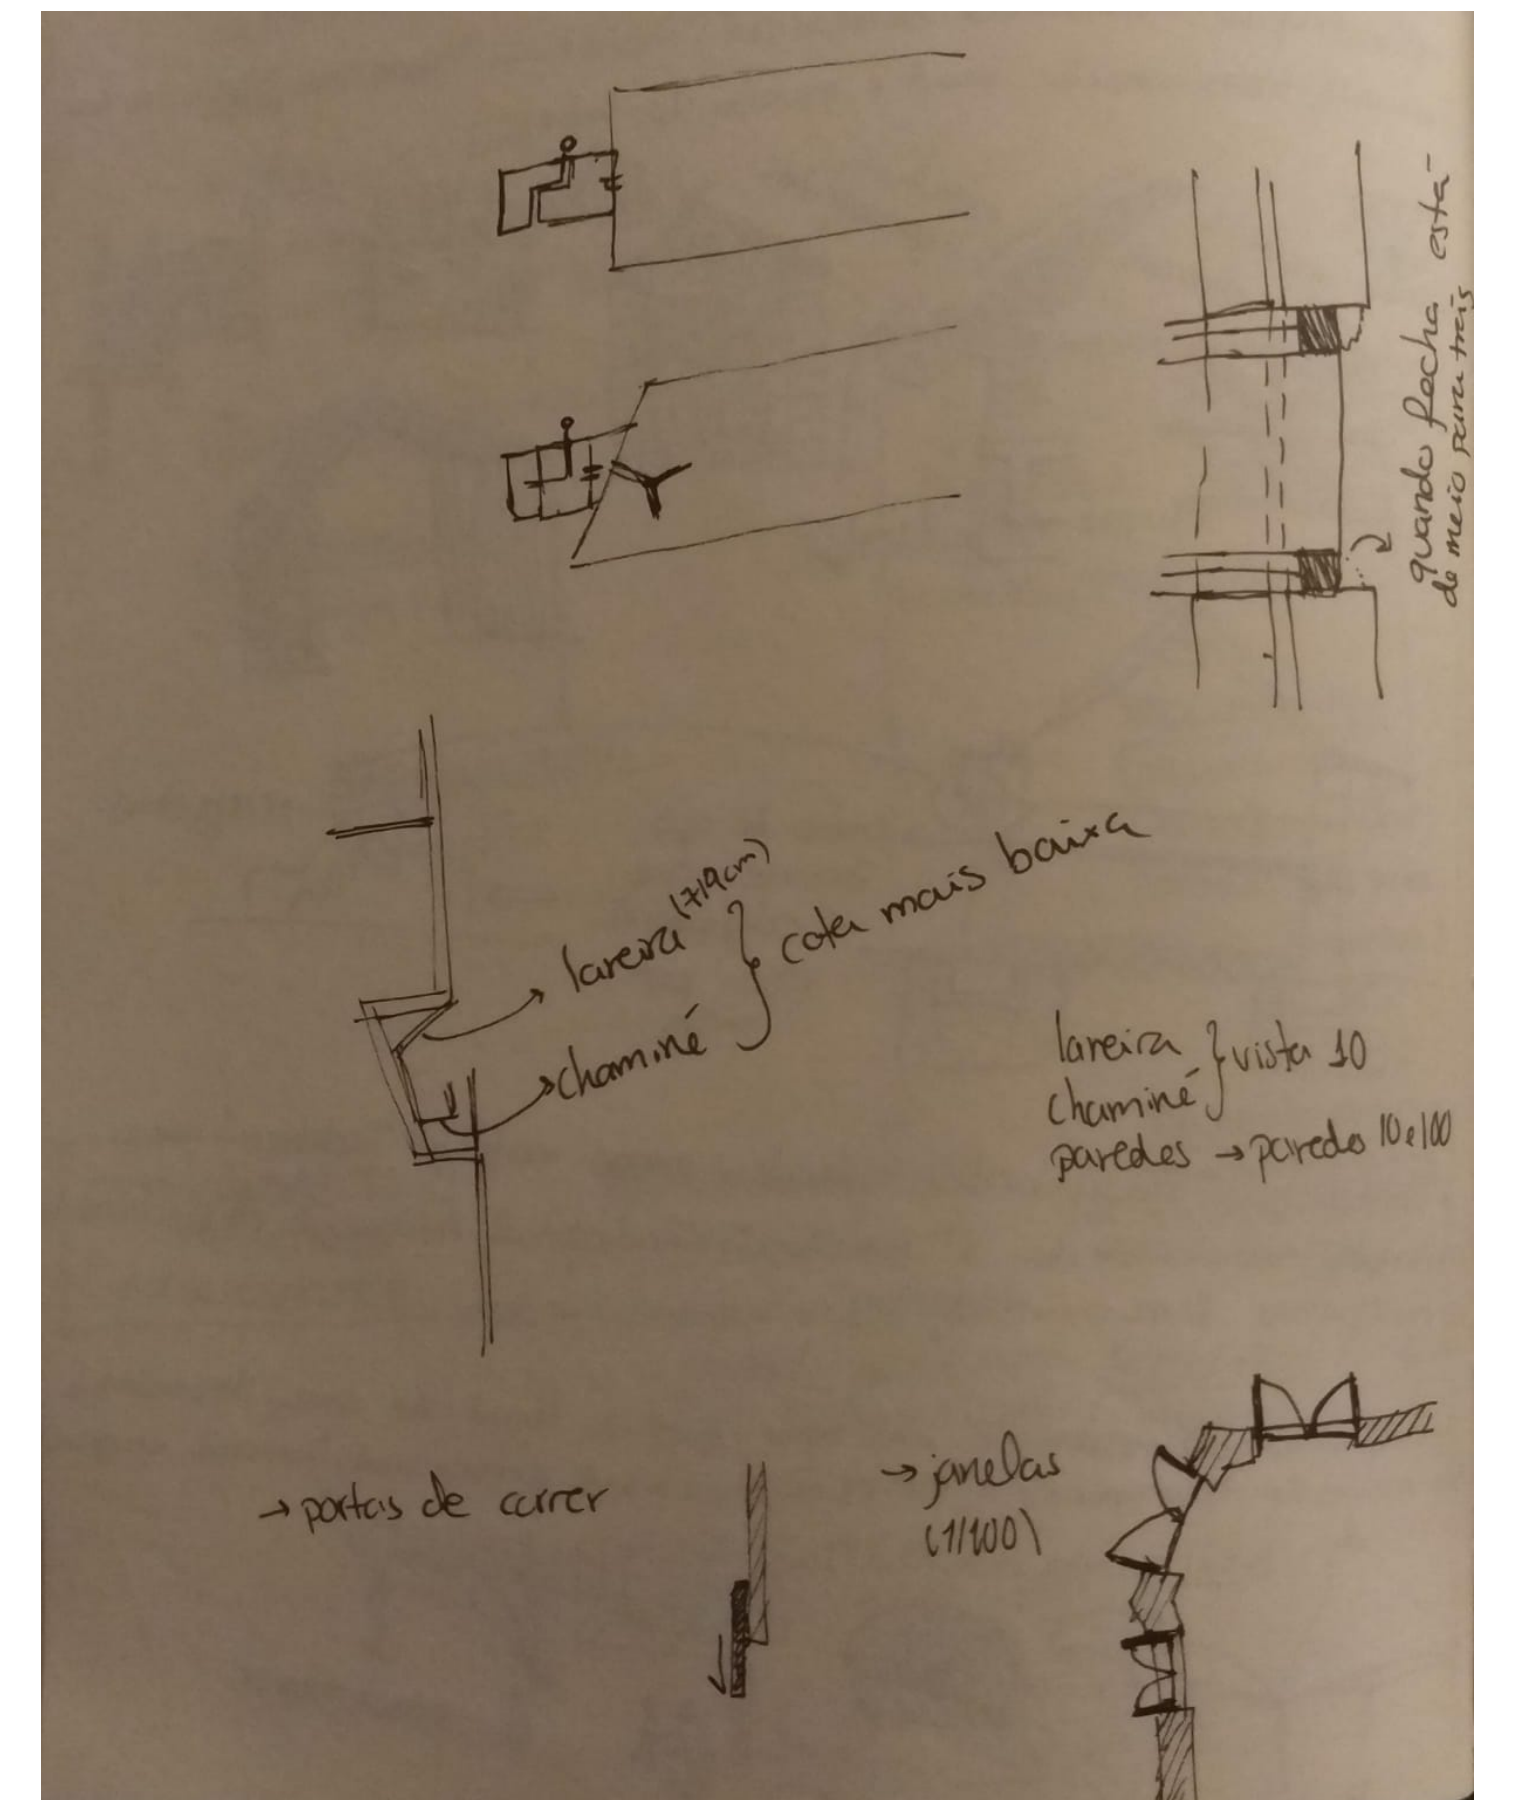 quando fecha está-
de meio para trás
lareira (719cm)
chaminé
} cota mais baixa
lareira
chaminé
} vista 10
paredes → paredes 10 e 100
→ portas de correr
→ janelas
(1/100)